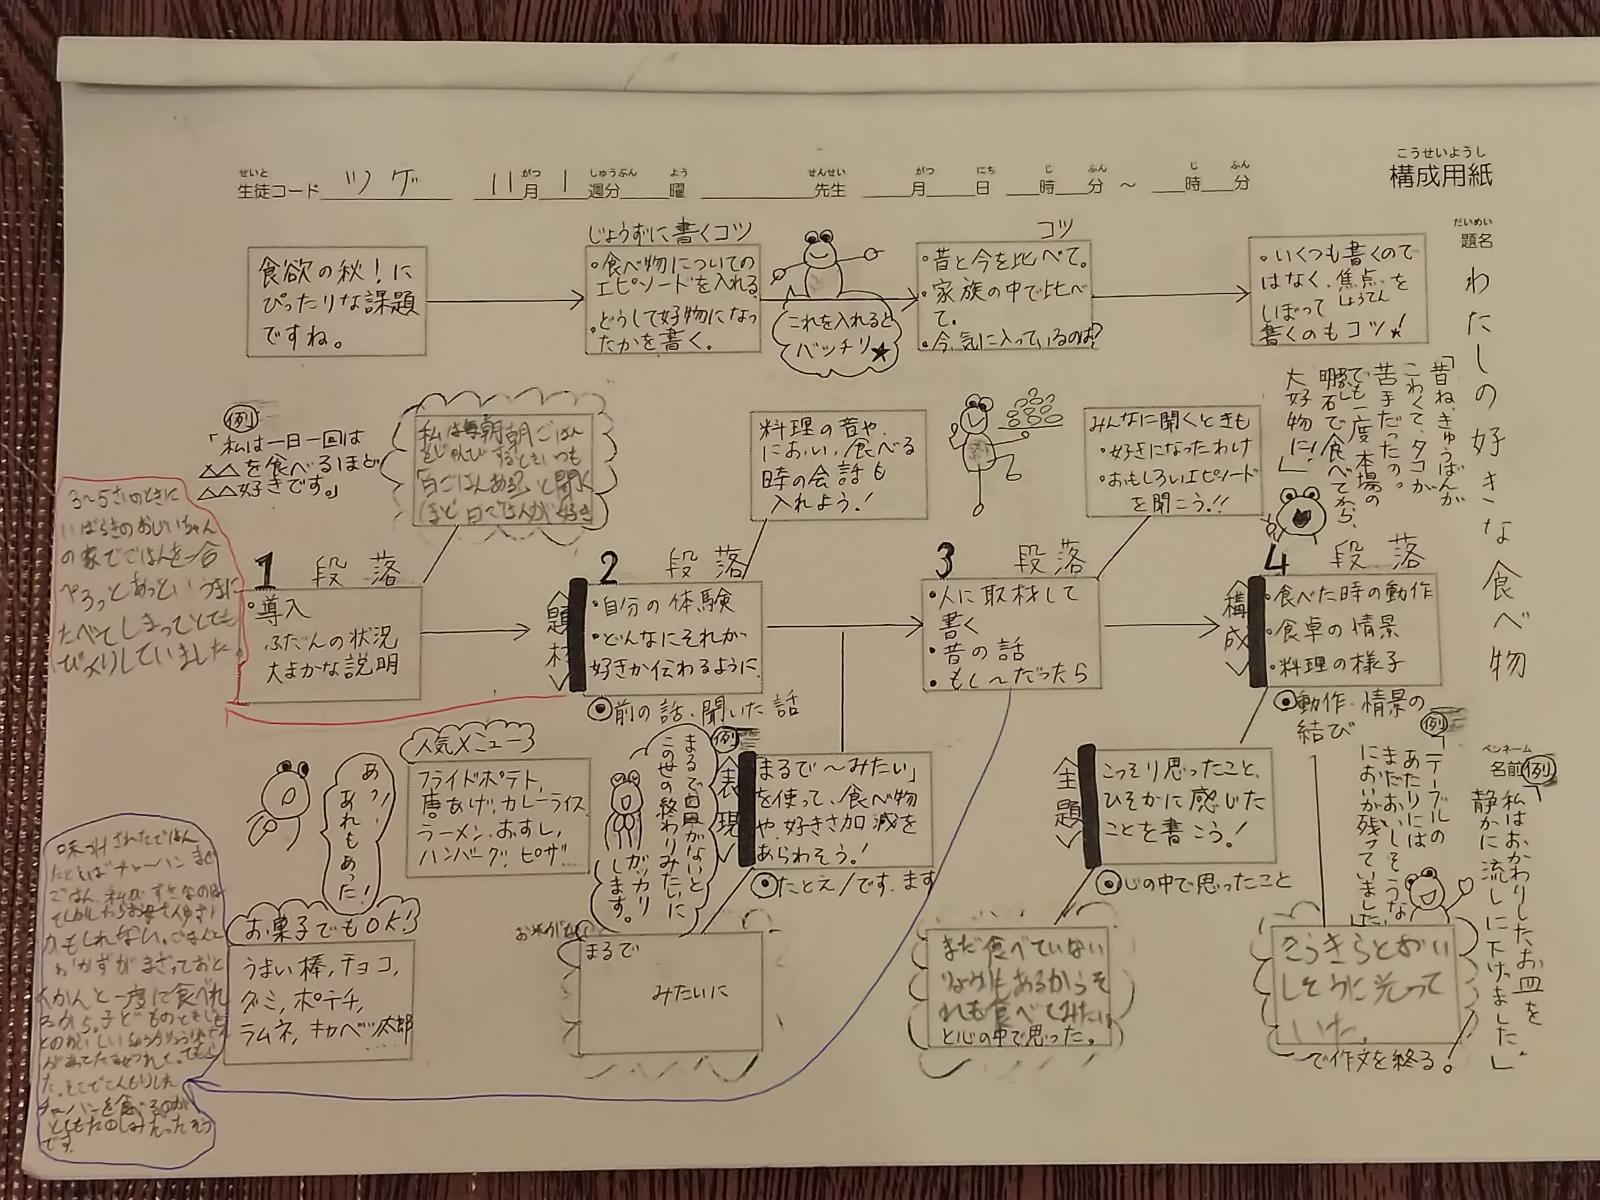 こうせいようし
構成用紙
せいと がつ しゅうぶん よう せんせい がつ にち じ ふん じ ふん
生徒コード ツゲ 11月 1週分 曜 先生 月 日 時 分 ～ 時 分
だいめい
題名
わたしの好きな食べ物
ペンネーム
名前
食欲の秋！に
ぴったりな課題
ですね。
じょうずに書くコツ
・食べ物についての
エピソードを入れる
・どうして好物になっ
たかを書く。
これを入れると
バッチリ★
コツ
・昔と今を比べて。
・家族の中で比べ
て。
・今、気に入っているのは？
・いくつも書くので
はなく、焦点を
しょうてん
しぼって
書くのもコツ！
(例)
「私は一日一回は
△△を食べるほど
△△好きです。」
私は毎朝朝ごはん
をじゅんびするときいつも
「白ごはんある?」と聞く
ほど白ごはんが好き
料理の音や、
におい、食べる
時の会話も
入れよう！
みんなに聞くときも
・好きになったわけ
・おもしろいエピソード
を聞こう！！
「昔ね、きゅうばんが
こわくて、タコが
苦手だったの。
でも一度、本場の
明石で食べてから、
大好物に！」
3～5さいのときに
いばらきのおじいちゃん
の家でごはんを一合
ぺろっとあっというまに
たべてしまってとても
びっくりしていました。
1 段落
・導入
ふだんの状況
大まかな説明
2 段落
＜題材＞
・自分の体験
・どんなにそれが
好きか伝わるように
◎前の話、聞いた話
3 段落
・人に取材して
書く
・昔の話
・もし～だったら
4 段落
＜構成＞
・食べた時の動作
・食卓の情景
・料理の様子
◎動作・情景の
結び
人気メニュー
フライドポテト、
唐あげ、カレーライス
ラーメン、おすし、
ハンバーグ、ピザ…
あっ！
あれもあった！
お菓子でもOK！
うまい棒、チョコ、
グミ、ポテチ、
ラムネ、キャベツ太郎
(例)
まるで白風がないと
この世の終わりみたいに
ガッカリ
します。
＜表現＞
「まるで～みたい」
を使って、食べ物
や、好きさ加減を
あらわそう！
◎たとえ／です、ます
お米が
まるで
みたいに
＜主題＞
こっそり思ったこと、
ひそかに感じた
ことを書こう！
◎心の中で思ったこと
まだ食べていない
りょうりもあるからそ
れも食べてみたい
と心の中で思った。
(例)
「テーブルの
あたりには
まだおいしそうな
においが残っていました」
(例)
「私はおかわりした、お皿を
静かに流しに下げました」
きらきらとおい
しそうに光って
いた。
で作文を終る！
味つけされたごはん
たとえばチャーハン
ごはん
かもしれない。ごはんと
おかずがまざっておと
かんと一度に食べれ
るから。子どものときに
た。そこでこんもりした
チャーハンを食べるのが
とてもたのしみだったそう
です。